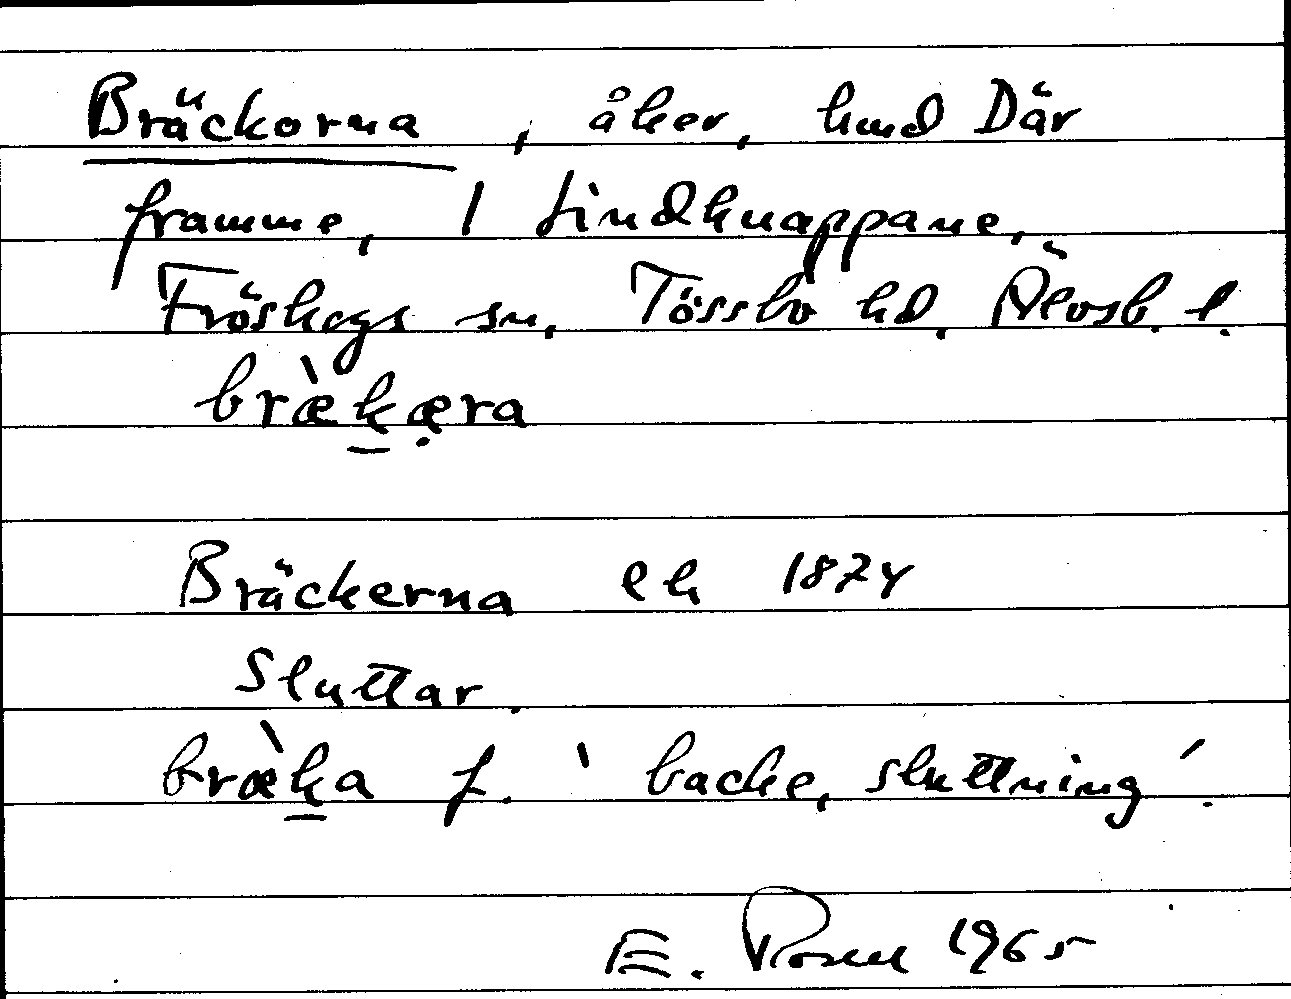 Bräckorna, åker, hmd Där
framme, 1 Lindknappane,
Fröskogs sn, Tössbo hd. Älvsb. l.
bræ̀k̲æ̣ra
Bräckerna ek 1874
Sluttar.
bræ̀k̲a f. 'backe, sluttning'.
E. Rosell 1965